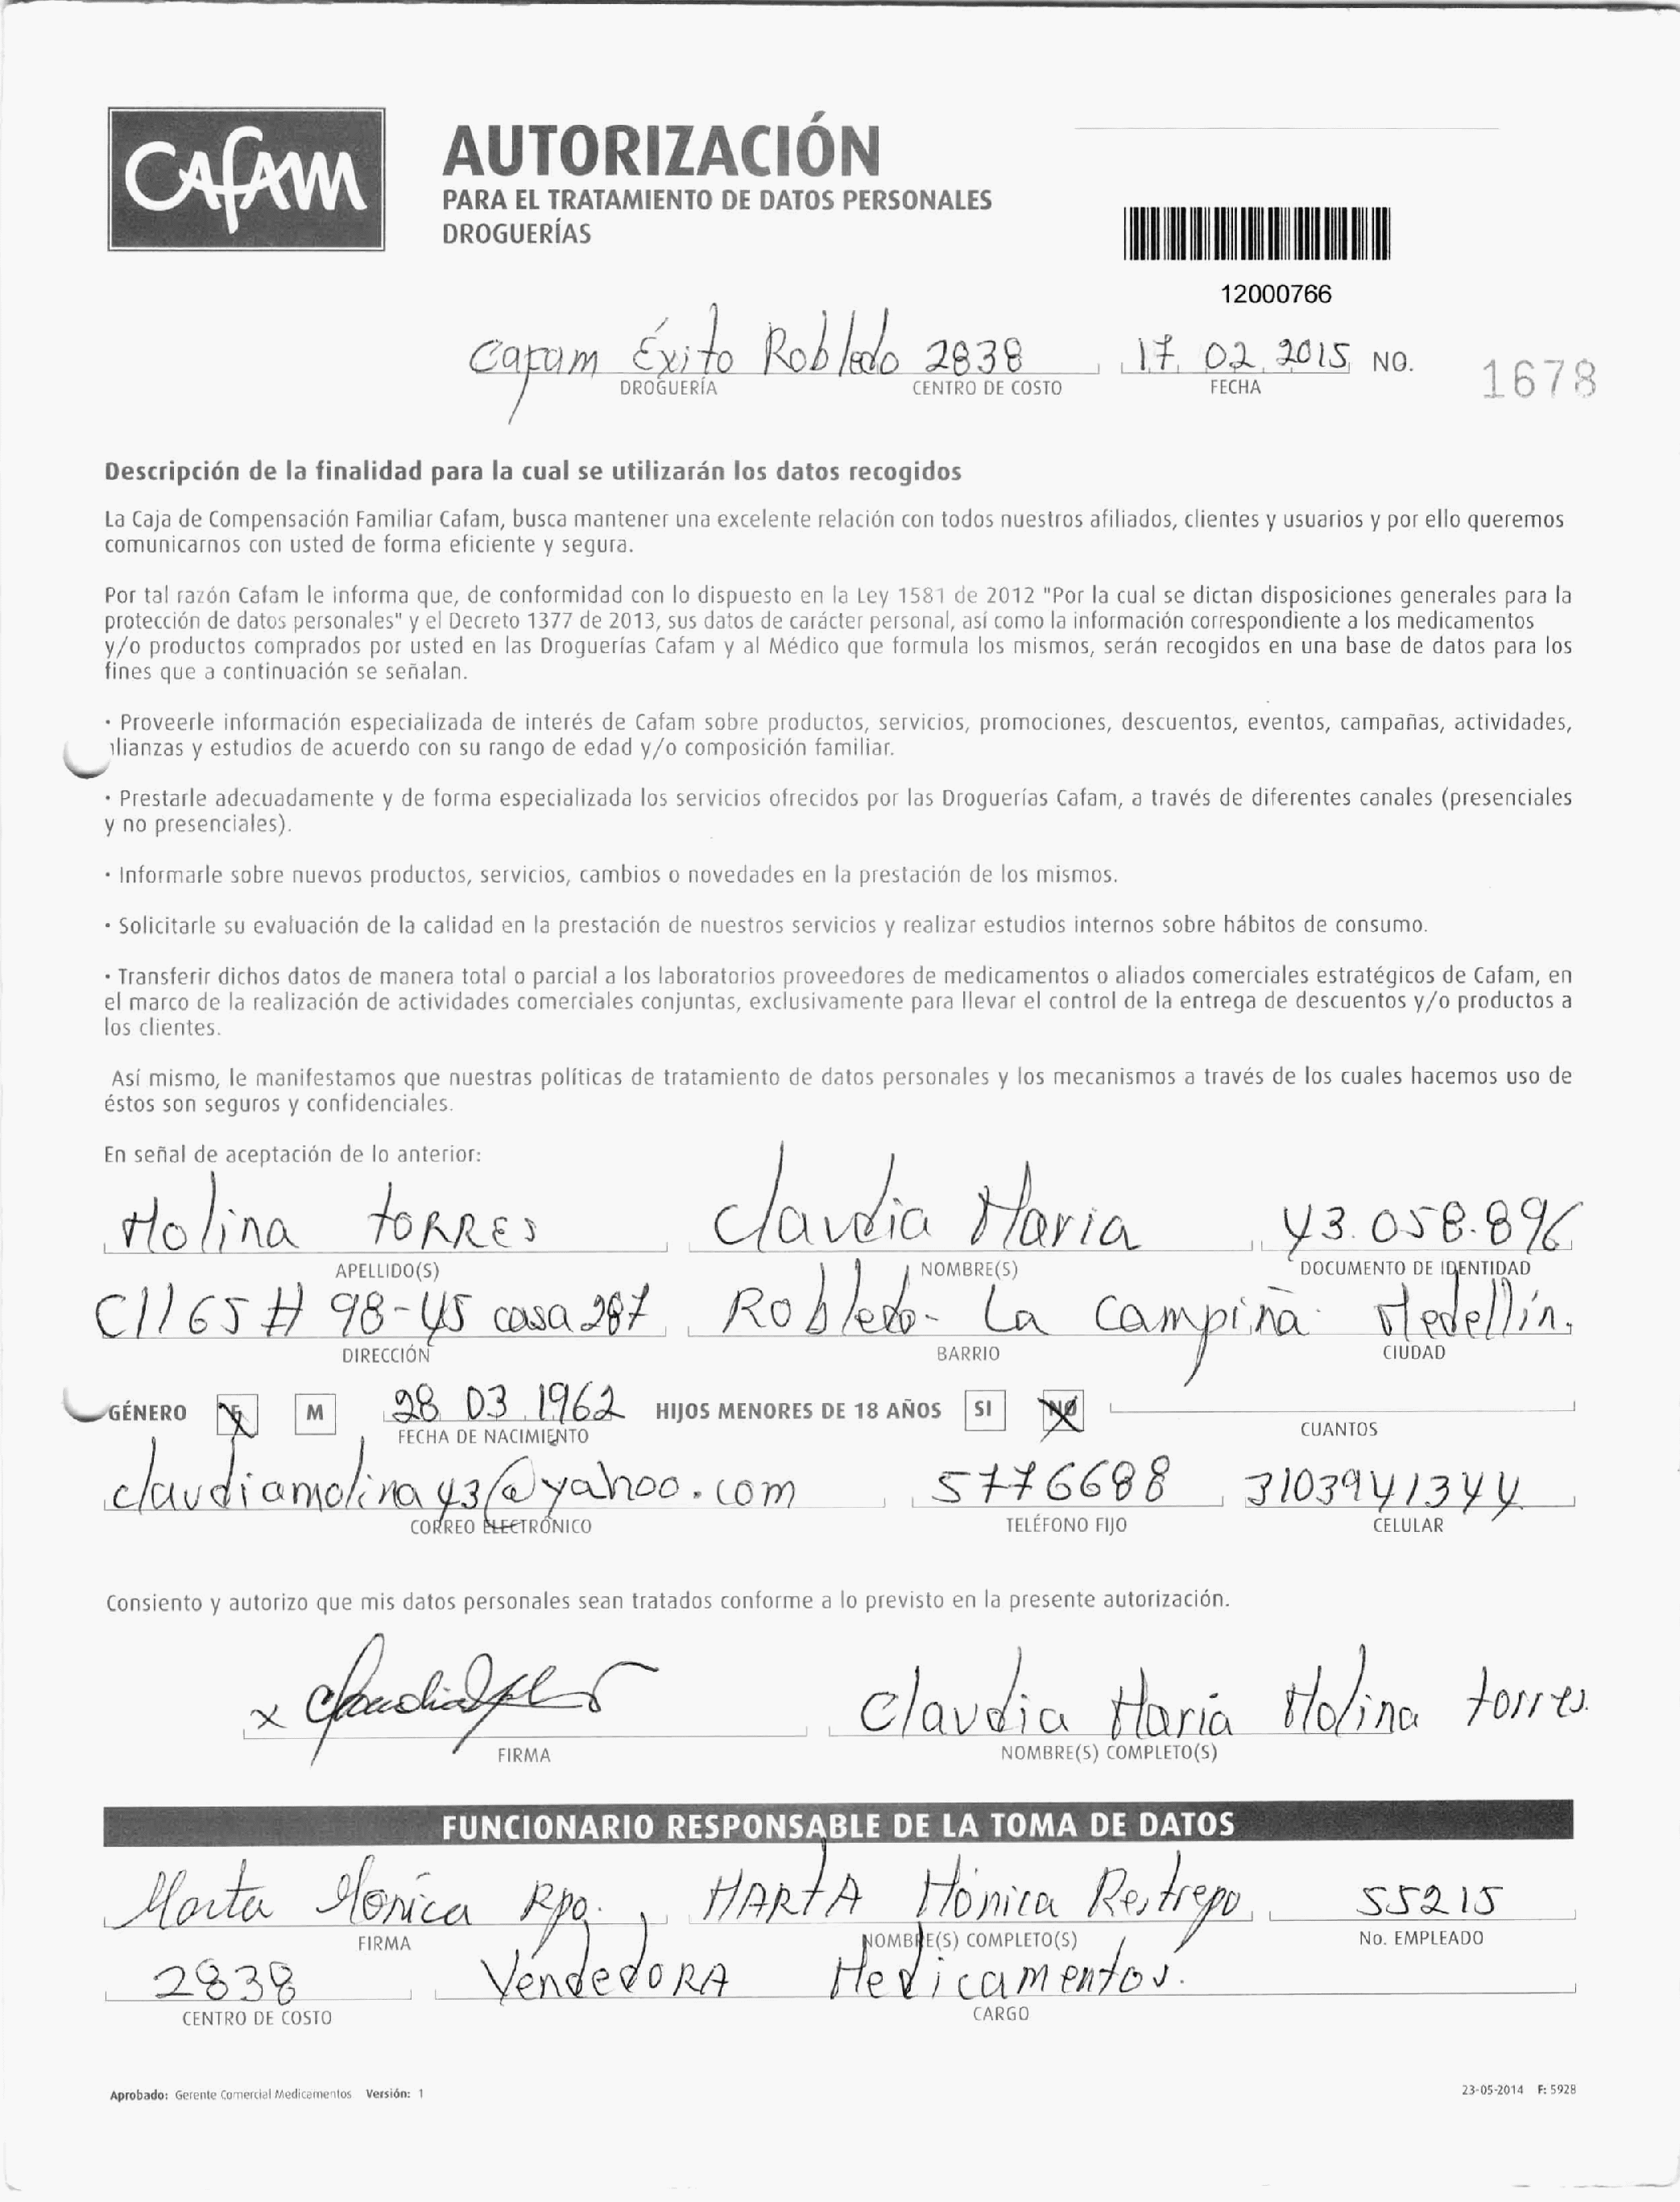 Cafam
AUTORIZACIÓN
PARA EL TRATAMIENTO DE DATOS PERSONALES
DROGUERÍAS
12000766
Cafam Éxito Robledo 2838 17 02 2015 NO. 1678
DROGUERÍA CENTRO DE COSTO FECHA
Descripción de la finalidad para la cual se utilizarán los datos recogidos
La Caja de Compensación Familiar Cafam, busca mantener una excelente relación con todos nuestros afiliados, clientes y usuarios y por ello queremos
comunicarnos con usted de forma eficiente y segura.
Por tal razón Cafam le informa que, de conformidad con lo dispuesto en la Ley 1581 de 2012 "Por la cual se dictan disposiciones generales para la
protección de datos personales" y el Decreto 1377 de 2013, sus datos de carácter personal, así como la información correspondiente a los medicamentos
y/o productos comprados por usted en las Droguerías Cafam y al Médico que formula los mismos, serán recogidos en una base de datos para los
fines que a continuación se señalan.
· Proveerle información especializada de interés de Cafam sobre productos, servicios, promociones, descuentos, eventos, campañas, actividades,
alianzas y estudios de acuerdo con su rango de edad y/o composición familiar.
· Prestarle adecuadamente y de forma especializada los servicios ofrecidos por las Droguerías Cafam, a través de diferentes canales (presenciales
y no presenciales).
· Informarle sobre nuevos productos, servicios, cambios o novedades en la prestación de los mismos.
· Solicitarle su evaluación de la calidad en la prestación de nuestros servicios y realizar estudios internos sobre hábitos de consumo.
· Transferir dichos datos de manera total o parcial a los laboratorios proveedores de medicamentos o aliados comerciales estratégicos de Cafam, en
el marco de la realización de actividades comerciales conjuntas, exclusivamente para llevar el control de la entrega de descuentos y/o productos a
los clientes.
Así mismo, le manifestamos que nuestras políticas de tratamiento de datos personales y los mecanismos a través de los cuales hacemos uso de
éstos son seguros y confidenciales.
En señal de aceptación de lo anterior:
Molina TORRES Claudia Maria 43.058.896
APELLIDO(S) NOMBRE(S) DOCUMENTO DE IDENTIDAD
Cll 65 # 98-45 casa 287 Robledo- La Campiña Medellín.
DIRECCIÓN BARRIO CIUDAD
GÉNERO F M 28 03 1962 HIJOS MENORES DE 18 AÑOS SI NO
FECHA DE NACIMIENTO CUANTOS
claudiamolina43@yahoo.com 5776688 3103941344
CORREO ELECTRÓNICO TELÉFONO FIJO CELULAR
Consiento y autorizo que mis datos personales sean tratados conforme a lo previsto en la presente autorización.
x Claudia Maria Molina torres.
FIRMA NOMBRE(S) COMPLETO(S)
FUNCIONARIO RESPONSABLE DE LA TOMA DE DATOS
Marta Monica Rpo. MARTA Mónica Restrepo 55215
FIRMA NOMBRE(S) COMPLETO(S) No. EMPLEADO
2838 VendedoRA Medicamentos.
CENTRO DE COSTO CARGO
Aprobado: Gerente Comercial Medicamentos Versión: 1 23-05-2014 F: 5928